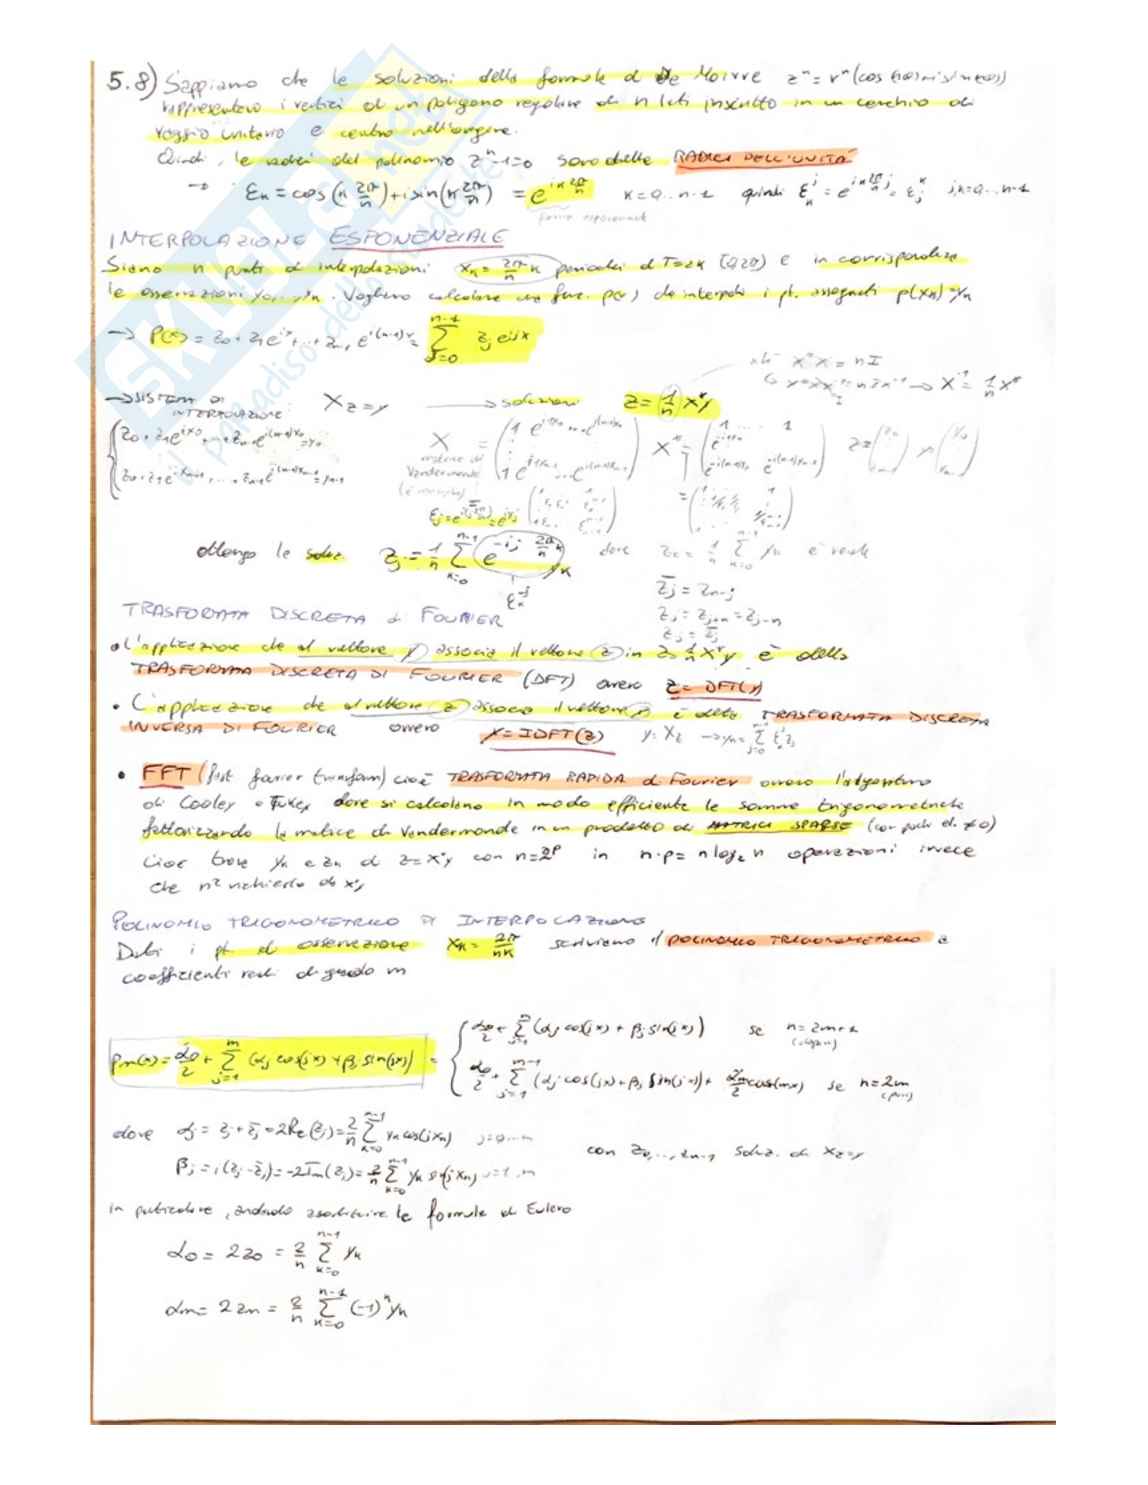 5.8) Sappiamo che le soluzioni della formula di De Moivre zⁿ = rⁿ(cos
rappresentano i vertici di un poligono regolare di n lati inscritto in un cerchio di
raggio unitario e centro nell'origine.
Quindi, le radici del polinomio zⁿ-1=0 sono dette RADICI DELL'UNITÀ
→ εₖ = cos(k 2π/n)+i sin(k 2π/n) = e^(ik 2π/n) k=0..n-1 quindi εₖ^j = e^(ik 2π/n j) = ε_j^k j,k=0..n-1
forma esponenziale
INTERPOLAZIONE ESPONENZIALE
Siano n punti di interpolazioni xₖ = 2π/n k periodici di T=2π [0,2π) e in corrispondenza
le osservazioni y₀,...,yₙ. Vogliamo calcolare una funz. p(x) che interpoli i pt. assegnati p(xₖ)=yₖ
→ P(x) = z₀ + z₁e^(ix)+...+zₙ₋₁ e^(i(n-1)x) = Σ_(j=0)^(n-1) z_j e^(ijx)
X*X = nI
→ X⁻¹ = 1/n X*
→ SISTEMA DI INTERPOLAZIONE Xz=y → soluzioni z = 1/n X*y
z₀+z₁e^(ix₀)+...+zₙ₋₁e^(i(n-1)x₀)=y₀
z₀+z₁e^(ixₙ₋₁)+...+zₙ₋₁e^(i(n-1)xₙ₋₁)=yₙ₋₁
X matrice di Vandermonde
ottengo le soluz. z_j = 1/n Σ_(k=0)^(n-1) e^(-ij 2π/n k) yₖ dove z₀ = 1/n Σ_(k=0)^(n-1) yₖ è reale
εₖ^(-j)
z̄_j = zₙ₋ⱼ
z_j = z_(j+n) = z_(j-n)
TRASFORMATA DISCRETA di FOURIER
• L'applicazione che al vettore y associa il vettore z in z=1/n X*y è detta
TRASFORMATA DISCRETA DI FOURIER (DFT) ovvero z = DFT(y)
• L'applicazione che al vettore z associa il vettore y è detta TRASFORMATA DISCRETA
INVERSA DI FOURIER ovvero y = IDFT(z) y = Xz → yₖ = Σ_(j=0)^(n-1) εₖ^j z_j
• FFT (fast fourier transform) cioè TRASFORMATA RAPIDA di Fourier ovvero l'algoritmo
di Cooley e Tukey dove si calcolano in modo efficiente le somme trigonometriche
fattorizzando la matrice di Vandermonde in un prodotto di MATRICI SPARSE (con pochi el. ≠0)
Cioè trova yₖ e zₖ di z=X*y con n=2^p in n·p = n log₂ n operazioni invece
che n² richieste da X*y
POLINOMIO TRIGONOMETRICO DI INTERPOLAZIONE
Dati i pt. di osservazione xₖ = 2π/nk scriviamo il POLINOMIO TRIGONOMETRICO a
coefficienti reali di grado m
pₘ(x) = α₀/2 + Σ_(j=1)^m (α_j cos(jx) + β_j sin(jx)) =
α₀/2 + Σ_(j=1)^m (α_j cos(jx) + β_j sin(jx)) se n=2m+1 (dispari)
α₀/2 + Σ_(j=1)^(m-1) (α_j cos(jx) + β_j sin(jx)) + αₘ/2 cos(mx) se n=2m (pari)
dove α_j = z_j + z̄_j = 2Re(z_j) = 2/n Σ_(k=0)^(n-1) yₖ cos(jxₖ) j=0..m
con z₀,...,zₙ₋₁ soluz. di Xz=y
β_j = i(z_j - z̄_j) = -2Im(z_j) = 2/n Σ_(k=0)^(n-1) yₖ sin(jxₖ) j=1..m
in particolare, andando a sostituire le formule di Eulero
α₀ = 2z₀ = 2/n Σ_(k=0)^(n-1) yₖ
αₘ = 2zₘ = 2/n Σ_(k=0)^(n-1) (-1)^k yₖ